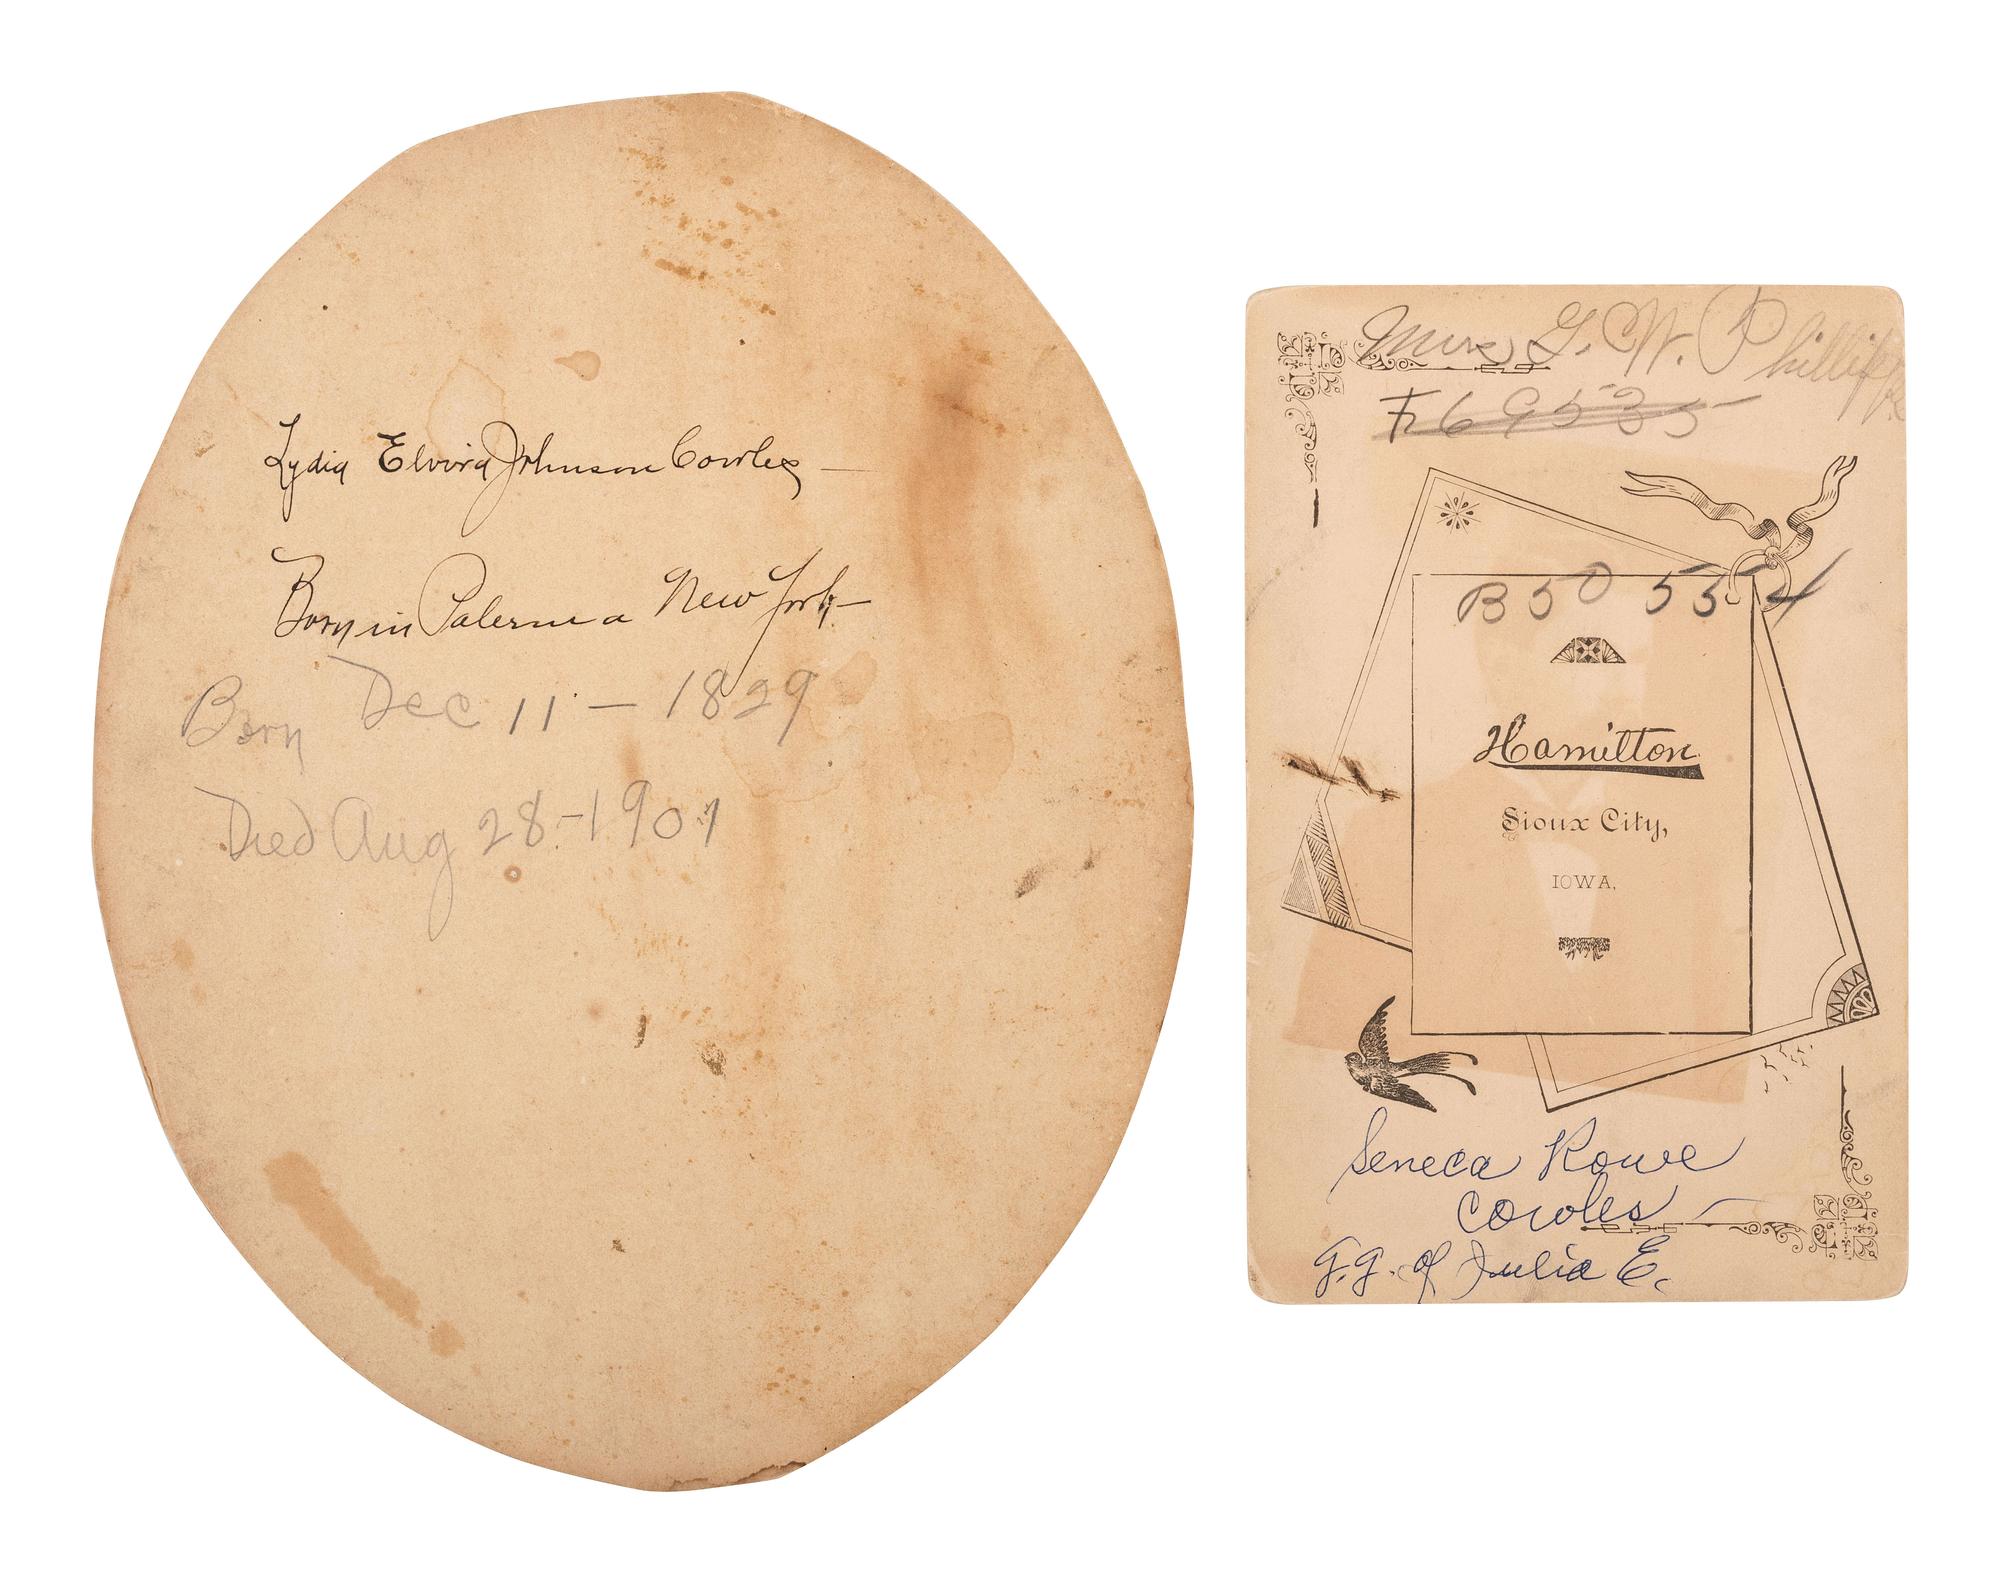 Lydia Elvira Johnson Cowles —
Born in Palermo New York —
Born Dec 11 — 1829
Died Aug 28 - 1901
Mrs G. W. Phillipps
F 69535
B50 554
Hamilton
Sioux City,
IOWA.
Seneca Rowe
Cowles —
g.g. of Julia E.